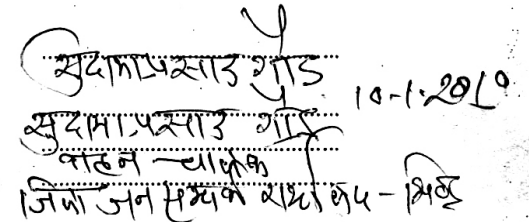 सुदामा प्रसाद गौड
10-1-2010
सुदामा प्रसाद गौड
वाहन चालक
जिला जन सम्पर्क कार्यालय - भिण्ड